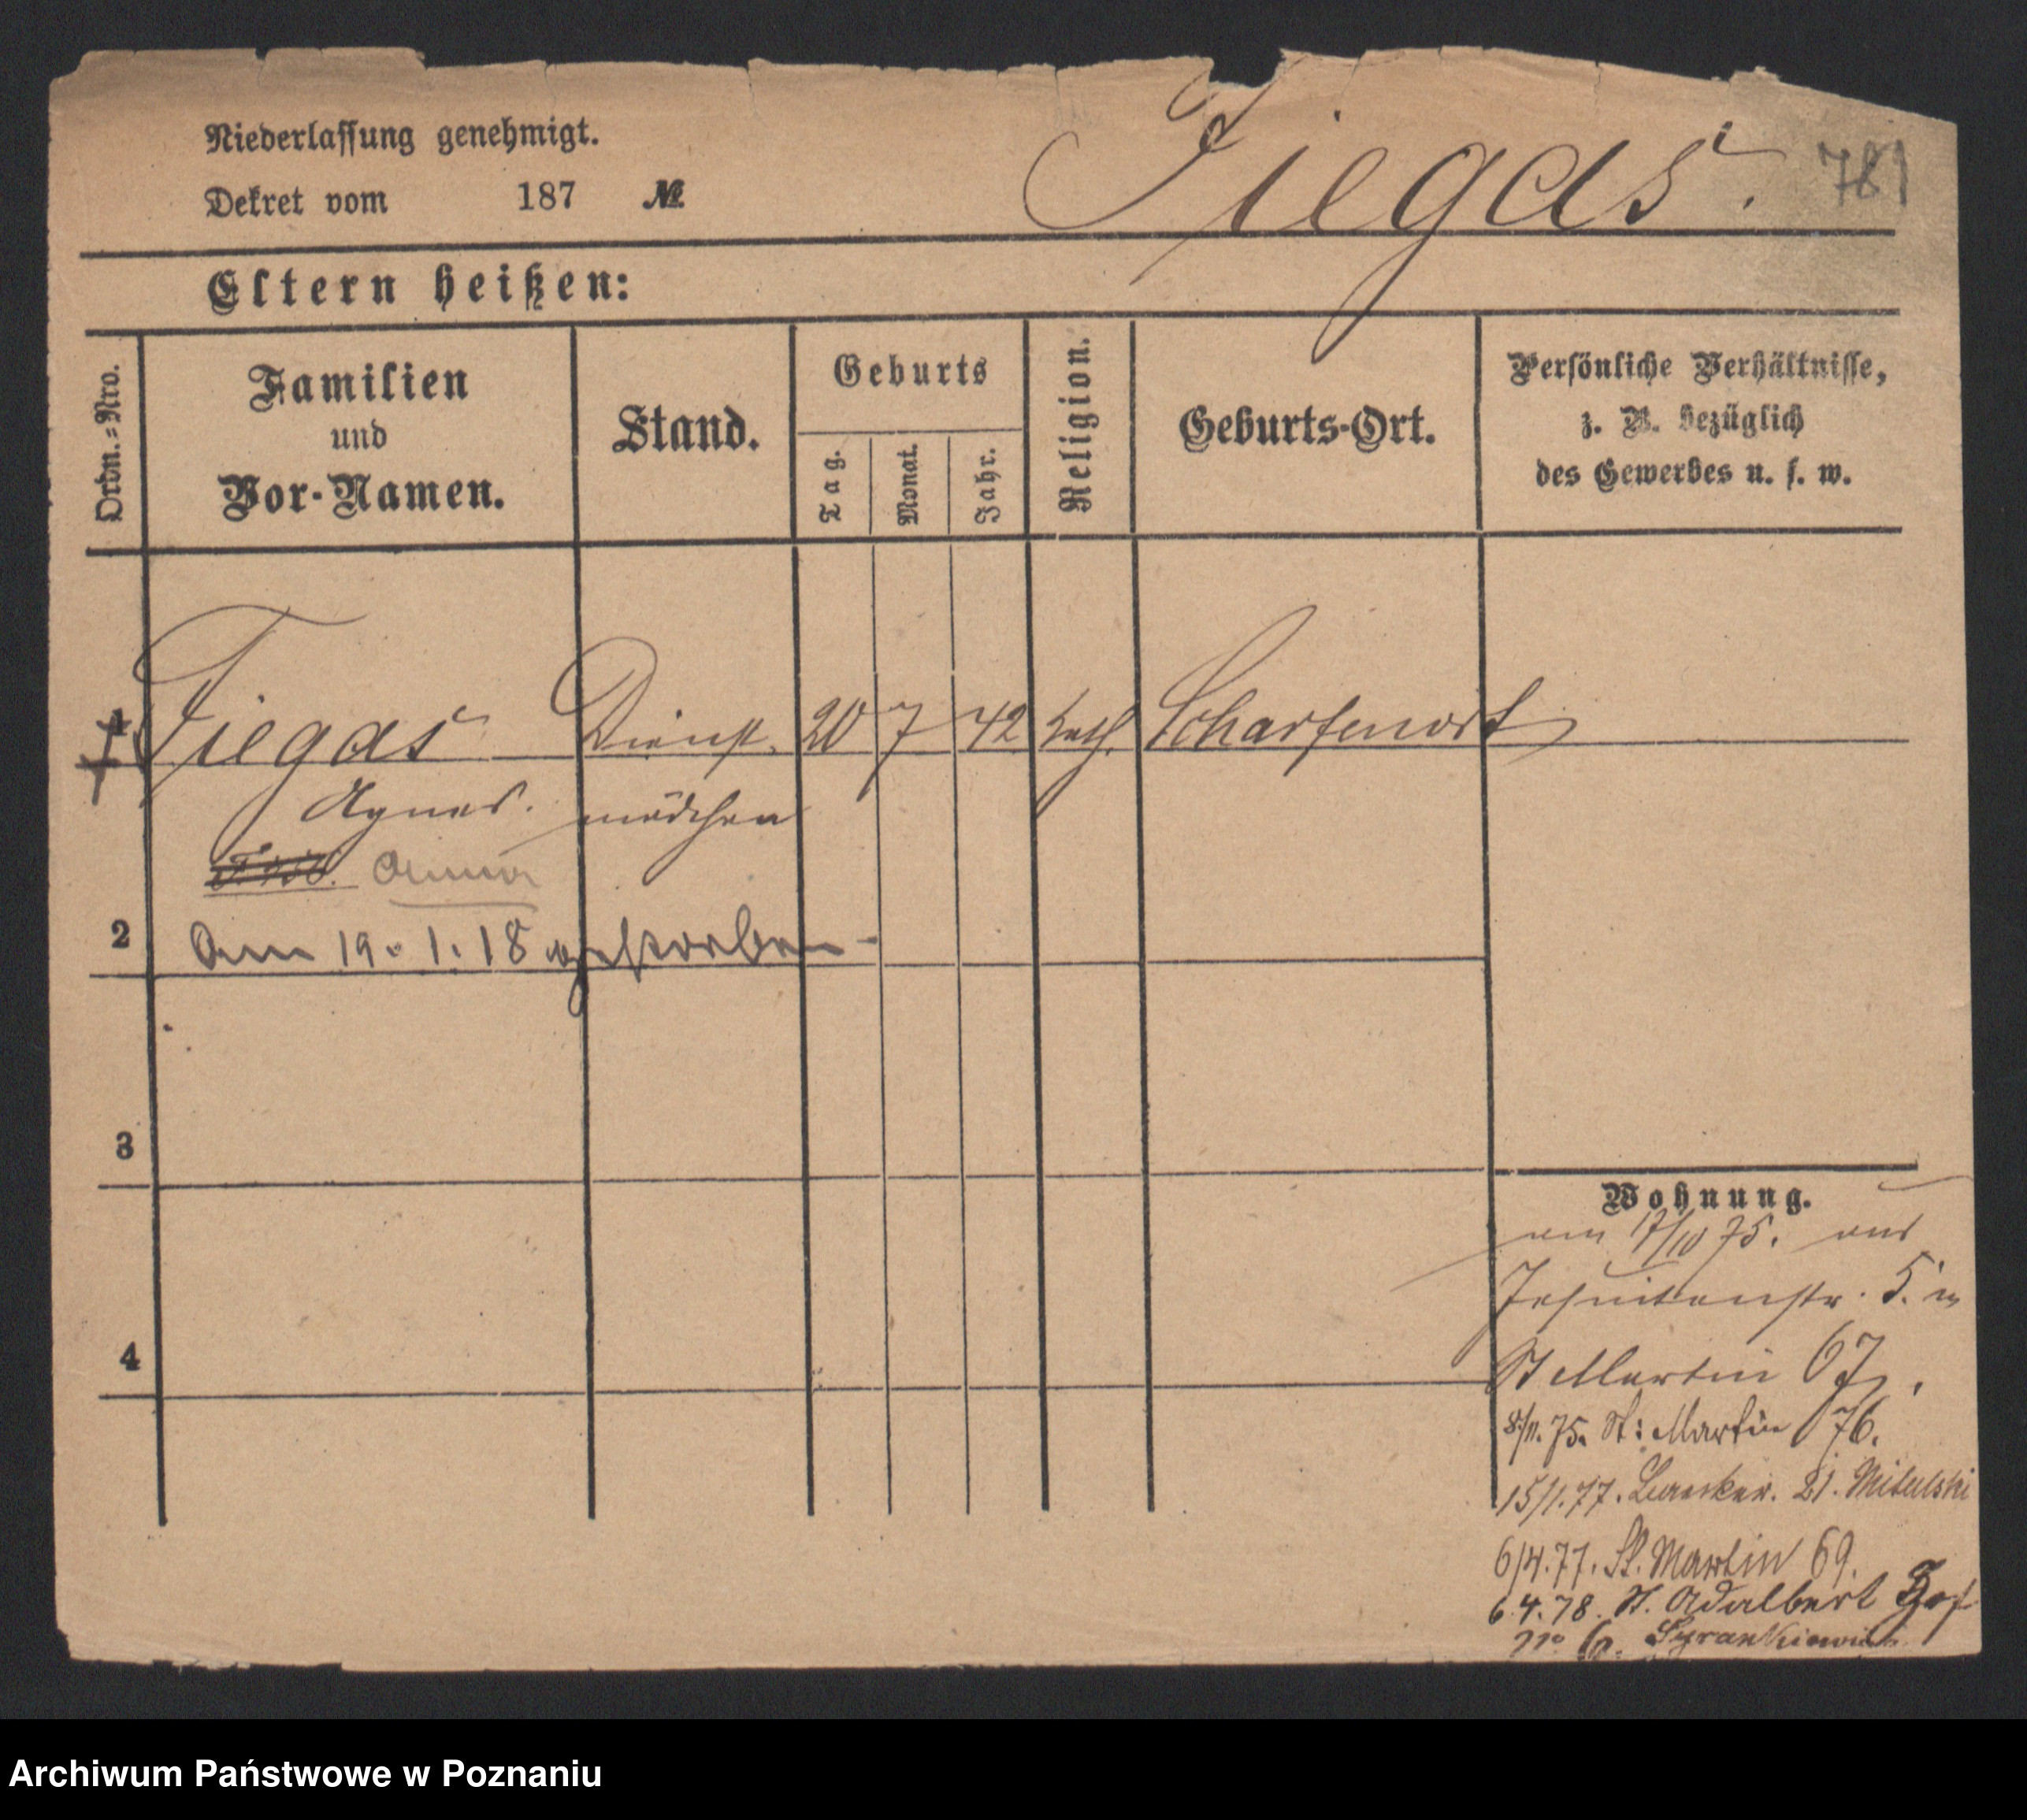 Niederlassung genehmigt.
Dekret vom 187 №
Fiegas.
781
Eltern heißen:
Ordn.=Nro.
Familien
und
Vor-Namen.
Stand.
Geburts
Tag.
Monat.
Jahr.
Religion.
Geburts-Ort.
Persönliche Verhältnisse,
z. B. bezüglich
des Gewerbes u. s. w.
1 Fiegas Dienst. 20 7 42 kath. Scharfenort
Agnes. mädchen
Anna
2 Am 19. 1. 18 gestorben
3
4
Wohnung.
am 17/10 75. aus
Jesuitenstr. 5. in
St Martin 67.
8/11. 75. St: Martin 76.
15/1. 77. 21.
6/4. 77. St. Martin 69.
6.4.78. St. Adalbert